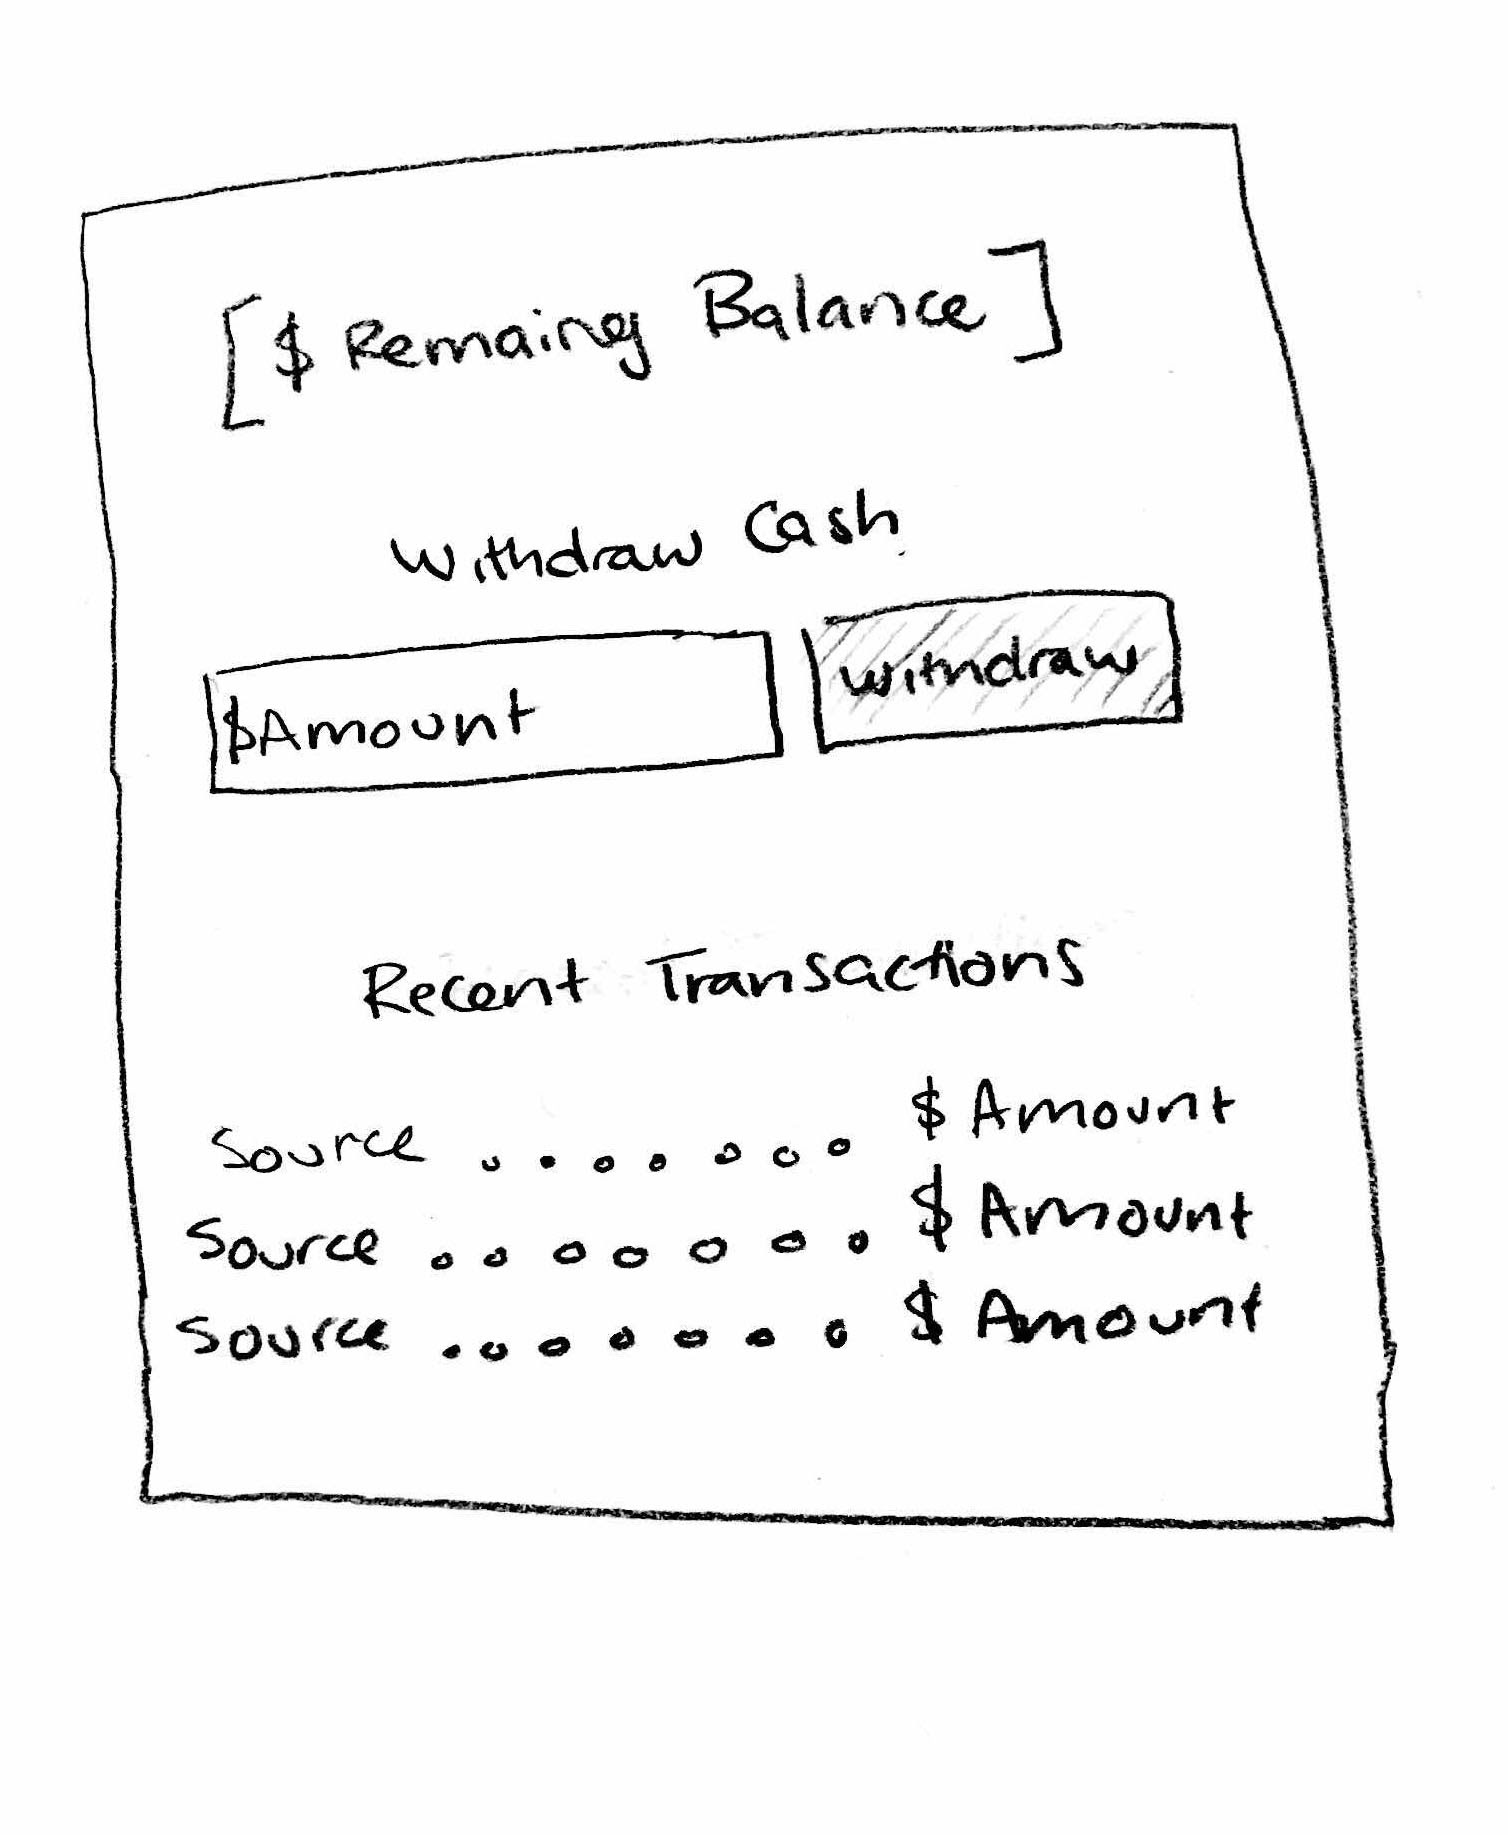 [$ Remaing Balance]
Withdraw Cash
$Amount
Withdraw
Recent Transactions
Source ....... $ Amount
Source ....... $ Amount
Source ....... $ Amount